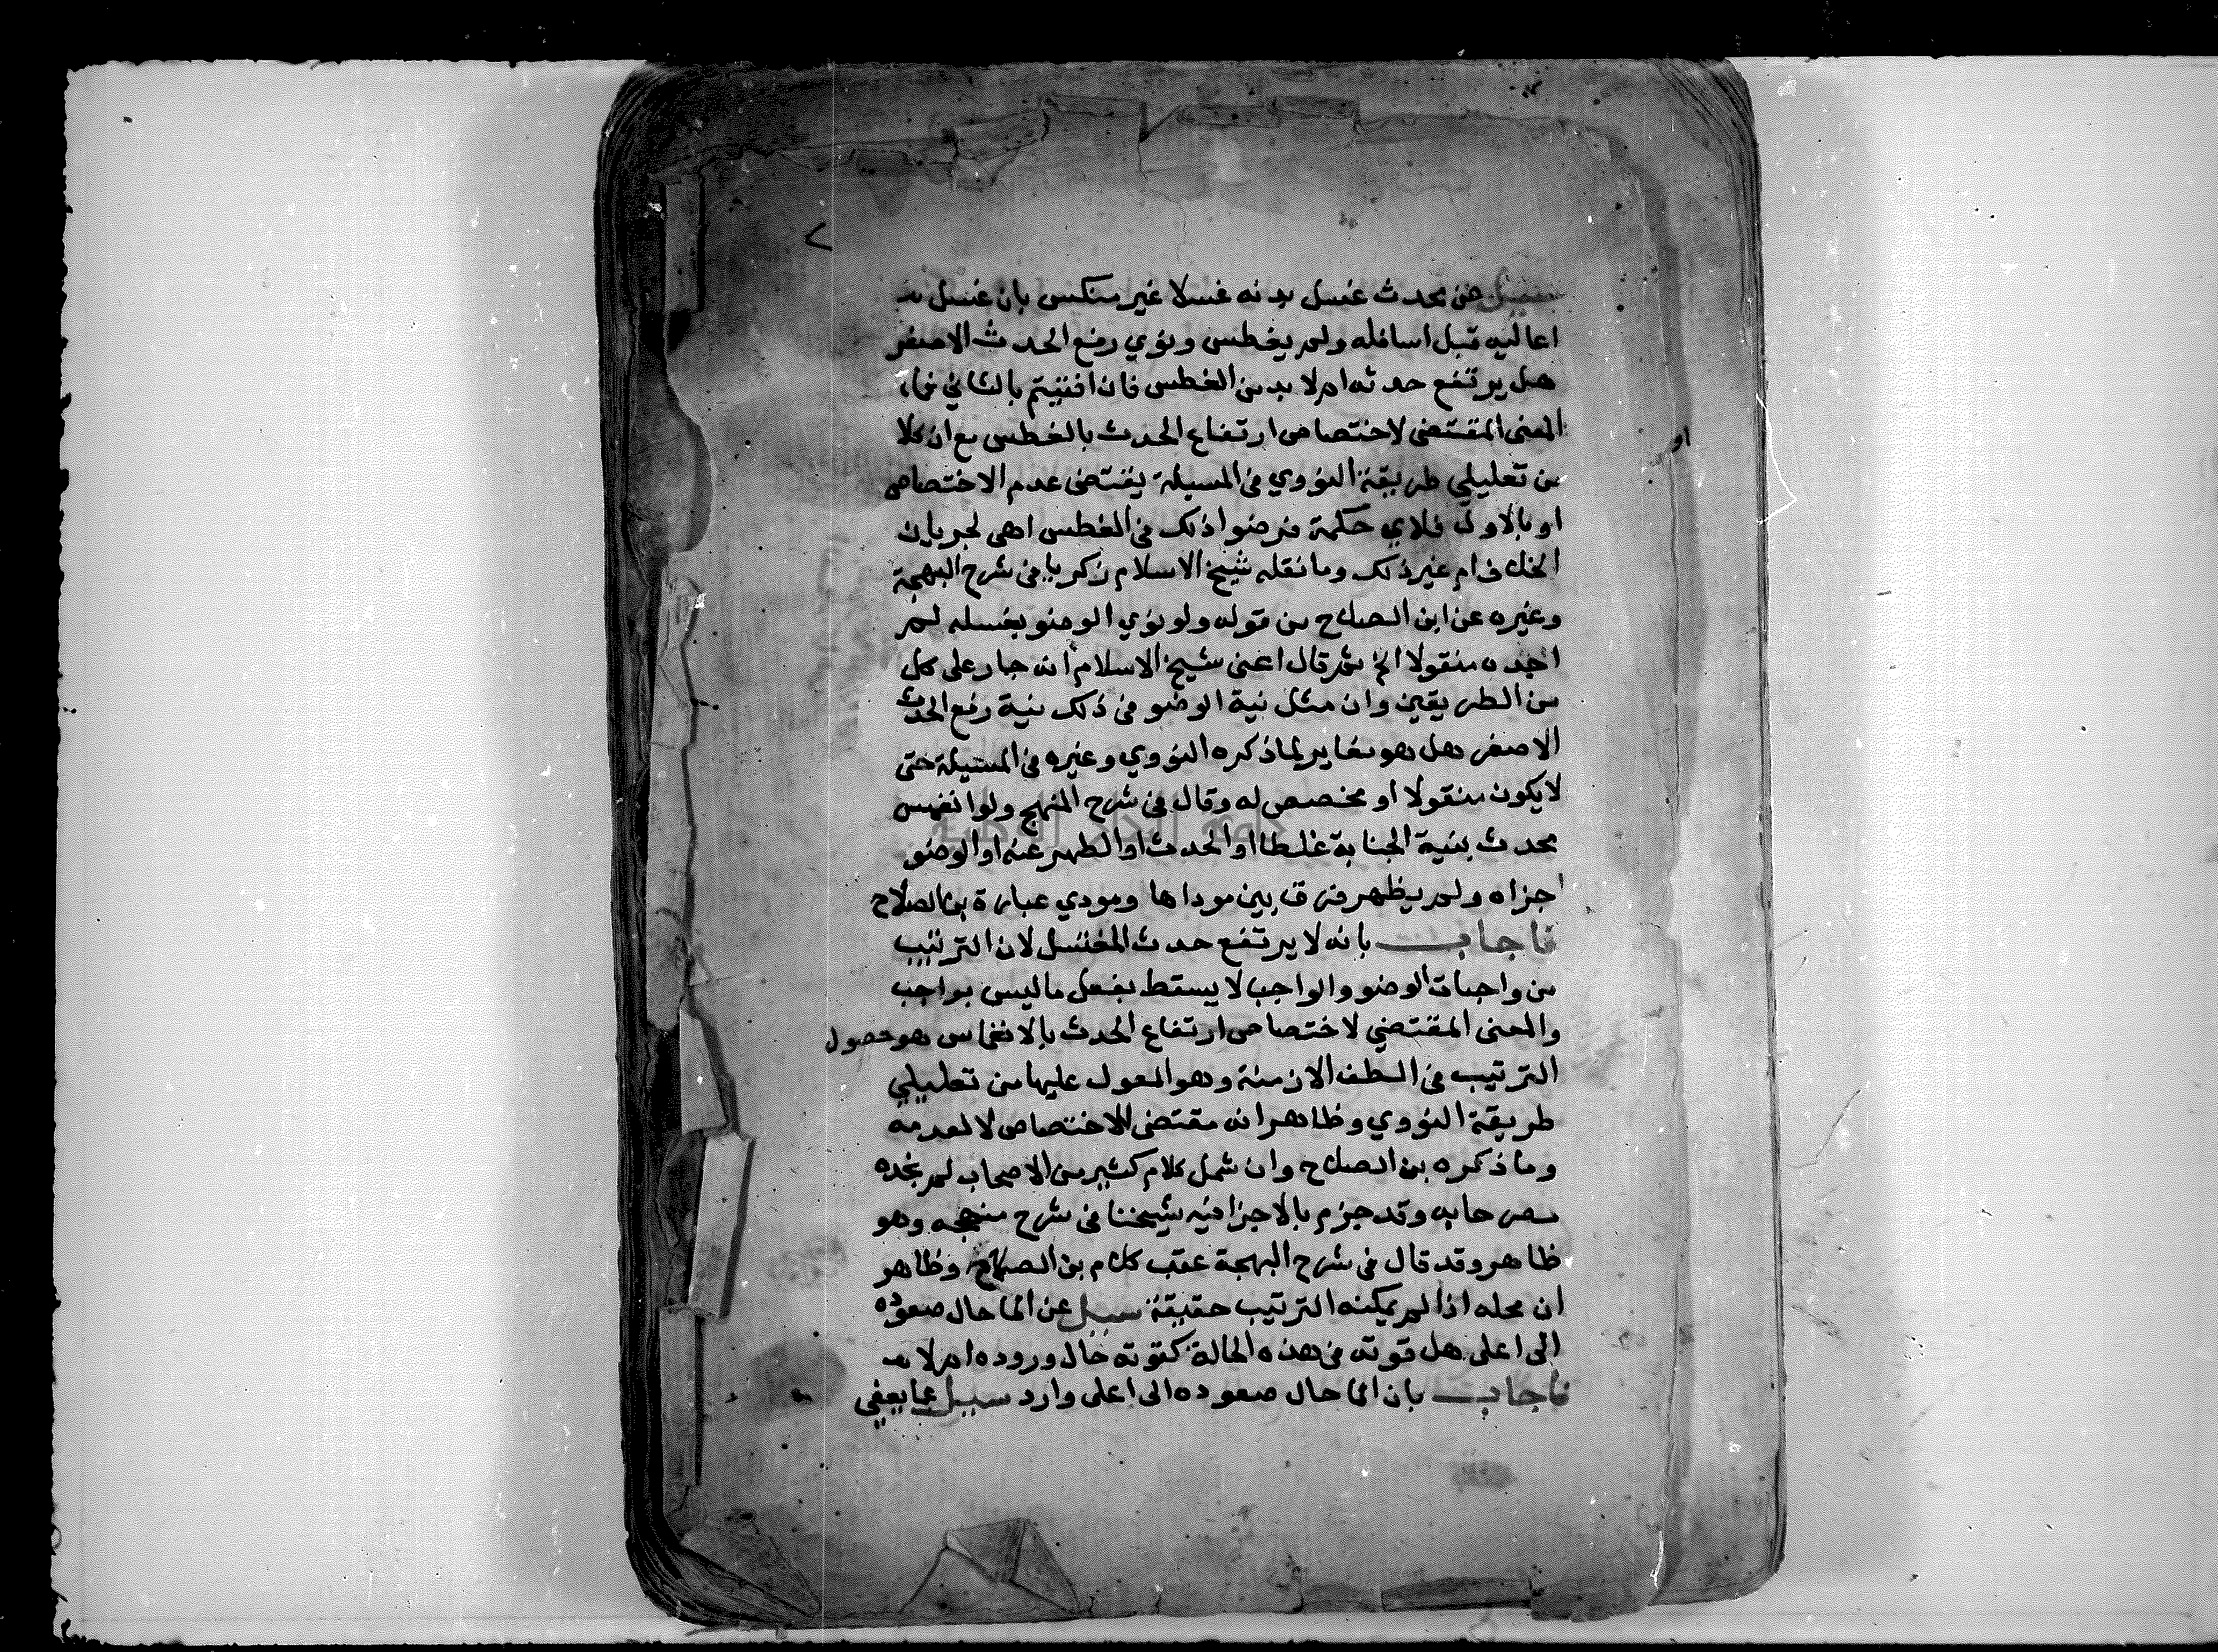 سيل عن محدث غسل بدنه غسلا غير منكس بان غسل
اعاليه قبل اسافله ولم يغطس ونوي رفع الحدث الاصغر
هل يرتفع حدثه ام لا بد من الغطس فان افتيتم بالثاني فما
المعنى المقتضى لاختصاص ارتفاع الحدث بالغطس مع ان كلا
من تعليلي طريقة النووي في المسيلة يقتضى عدم الاختصاص
او بالاول فلاي حكمة فرضوا ذلك في الغطس اهي لجريان
الخلاف ام غير ذلك وما نقله شيخ الاسلام زكريا في شرح البهجة
وغيره عن ابن الصلاح من قوله ولو نوي الوضو بغسله لم
اجده منقولا الخ ثم قال اعنى شيخ الاسلام انه جار على كل
من الطريقين وان مثل نية الوضو في ذلك نية رفع الحدث
الاصغر هل هو مغاير لما ذكره النووي وغيره في المسيلة حتى
لا يكون منقولا او مخصص له وقال في شرح المنهج ولو انغمس
محدث بنية الجنابة غلطا او الحدث او الطهر عنه او الوضو
اجزاه ولم يظهر فرق بين موداها ومودي عبارة بن الصلاح
فاجاب بانه لا يرتفع حدث المغتسل لان الترتيب
من واجبات الوضو والواجب لا يسقط بفعل ما ليس بواجب
والمعنى المقتضي لاختصاص ارتفاع الحدث بالانغماس هو حصول
الترتيب في الطف الازمنة وهو المعول عليها من تعليلي
طريقة النووي وظاهر انه مقتضى للاختصاص لا لعدمه
وما ذكره بن الصلاح وان شمل كلام كثير من الاصحاب لم نجده
مصرحا به وقد جزم بالاجزا فيه شيخنا في شرح منهجه وهو
ظاهر وقد قال في شرح البهجة عقب كلام بن الصلاح وظاهر
ان محله اذا لم يمكنه الترتيب حقيقة سيل عن الما حال صعوده
الى اعلى هل قوته في هذه الحالة كقوته حال وروده ام لا
فاجاب بان الما حال صعوده الى اعلى وارد سيل عما يعفى